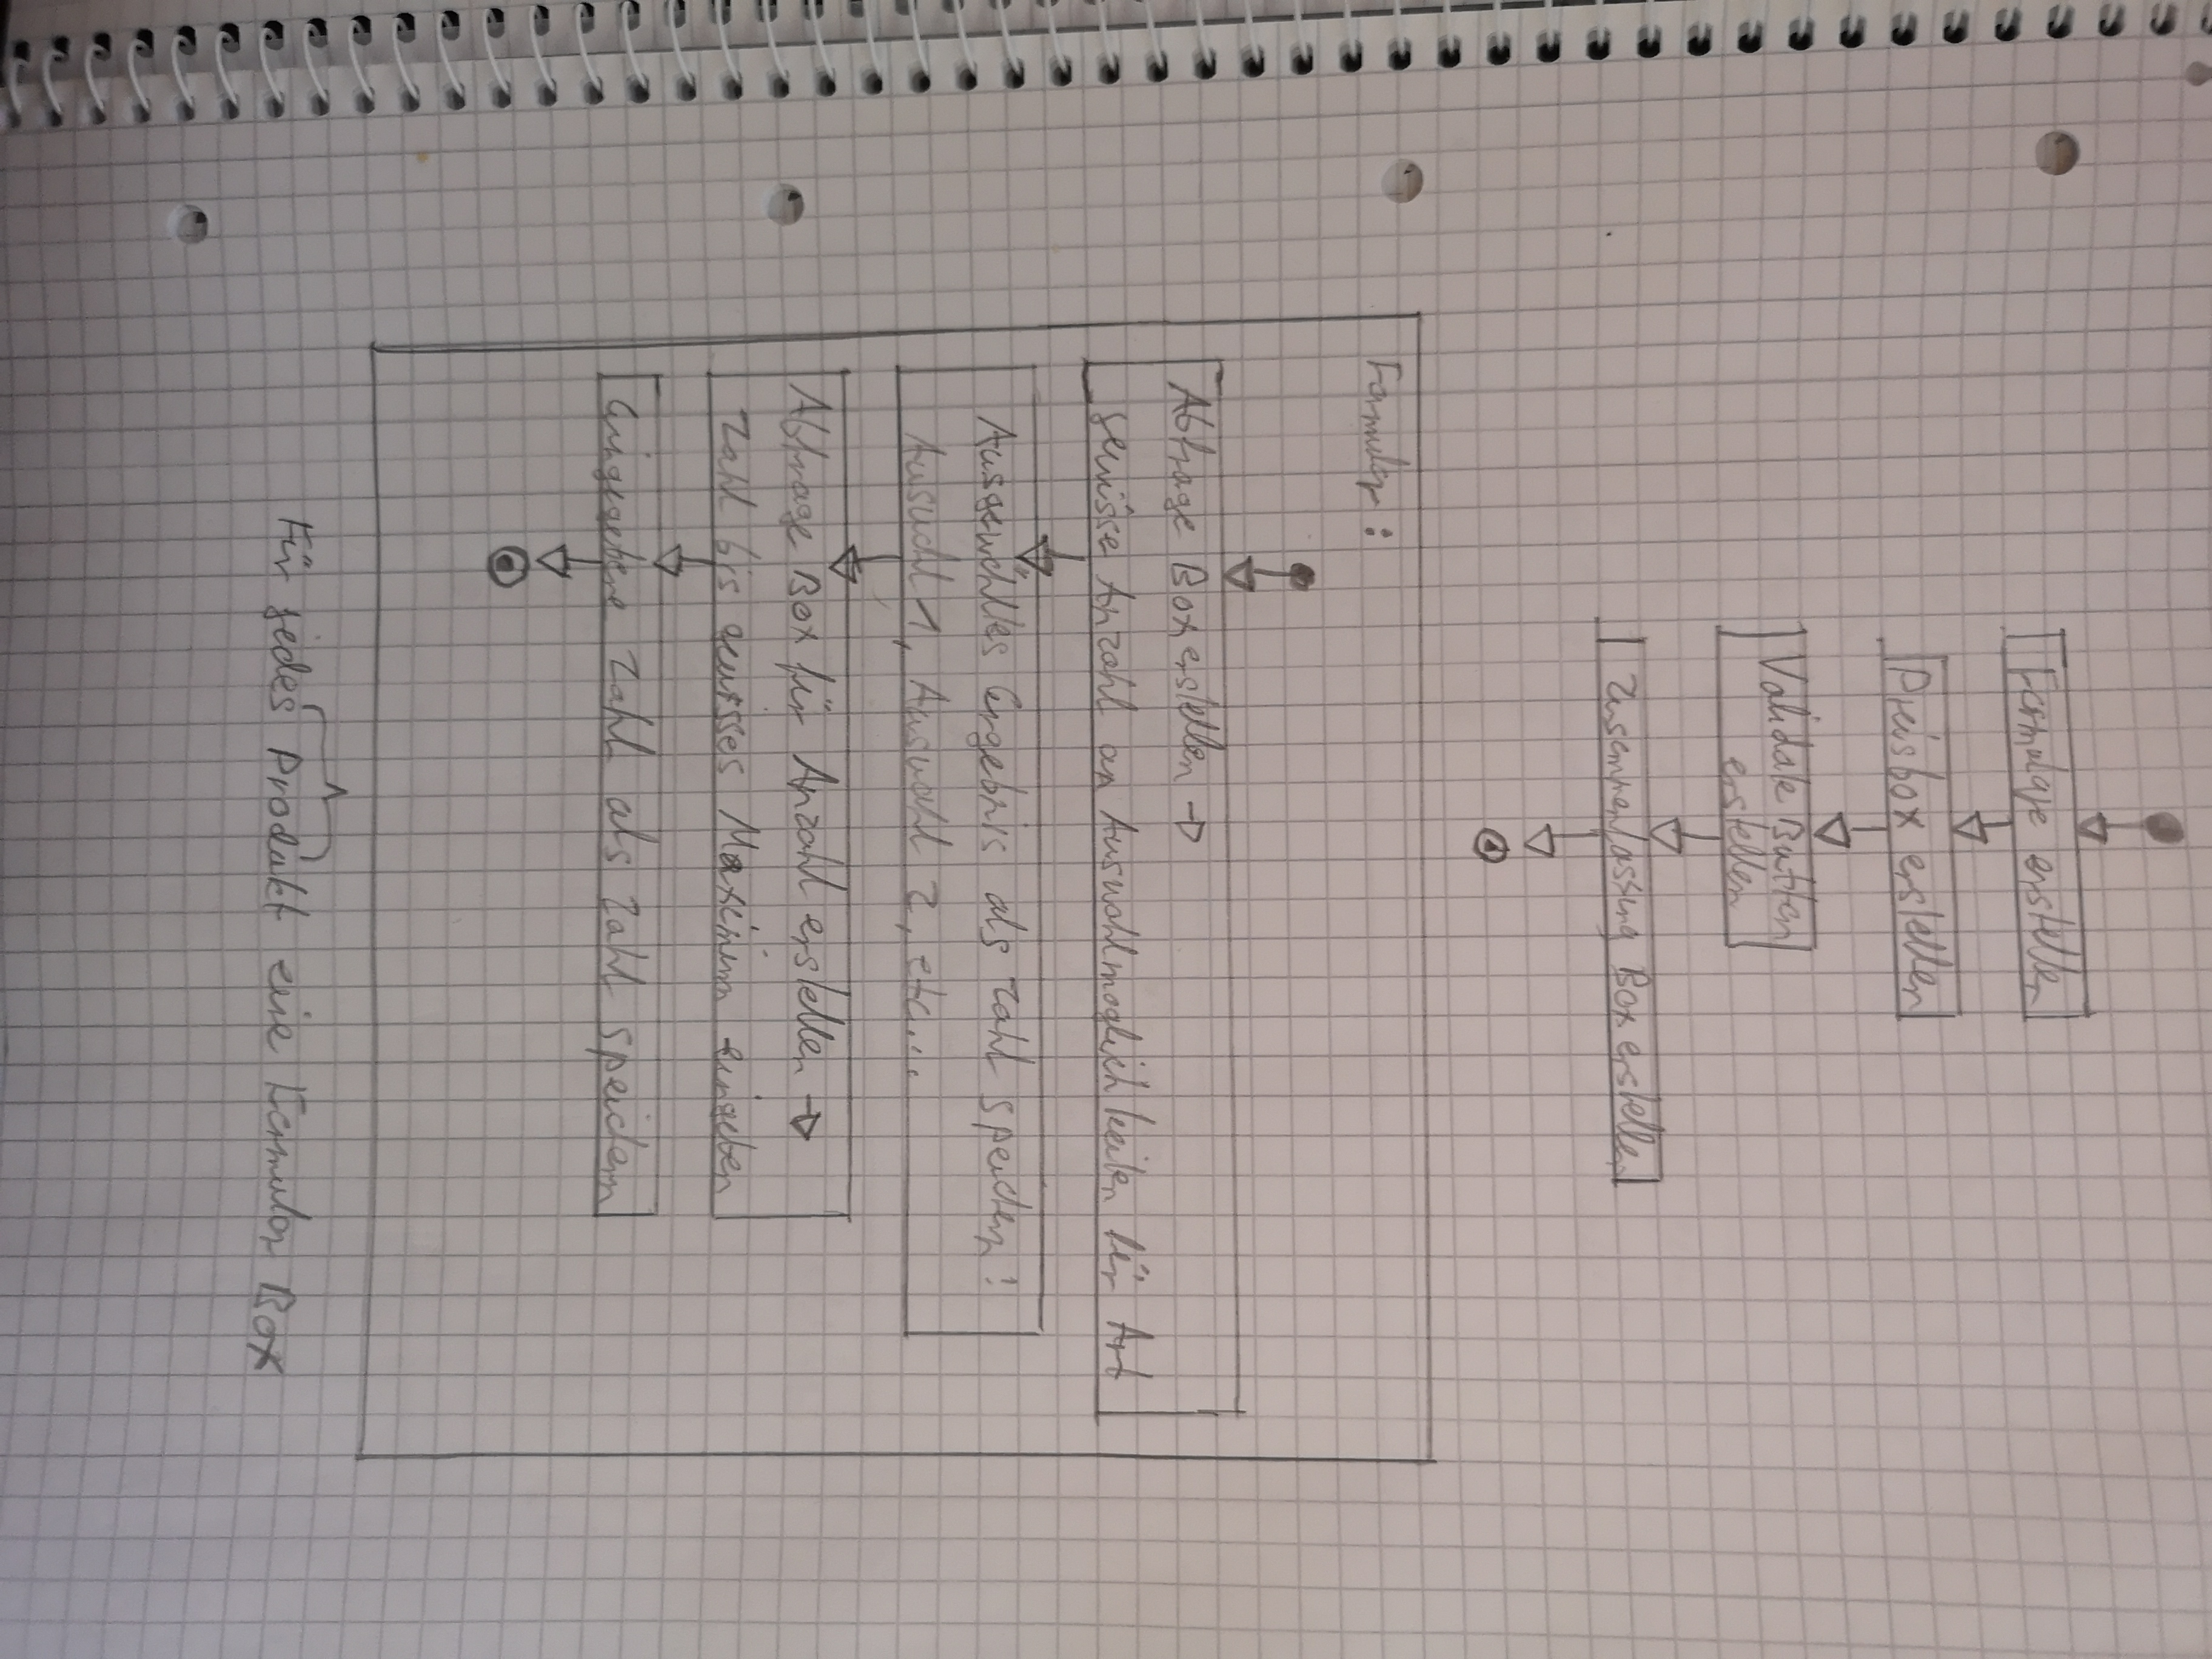 Formulare erstellen
Preisbox erstellen
Validate Button
erstellen
Zusammenfassung Box erstellen
Formular:
Abfrage Box erstellen →
gewisse Anzahl an Auswahlmöglichkeiten für Art
Ausgewähltes Ergebnis als Zahl speichern:
Auswahl 1, Auswahl 2, etc...
Abfrage Box für Anzahl erstellen →
Zahl bis gewisses Maximum eingeben
Eingegebene Zahl als Zahl speichern
Für jedes Produkt eine Formular Box